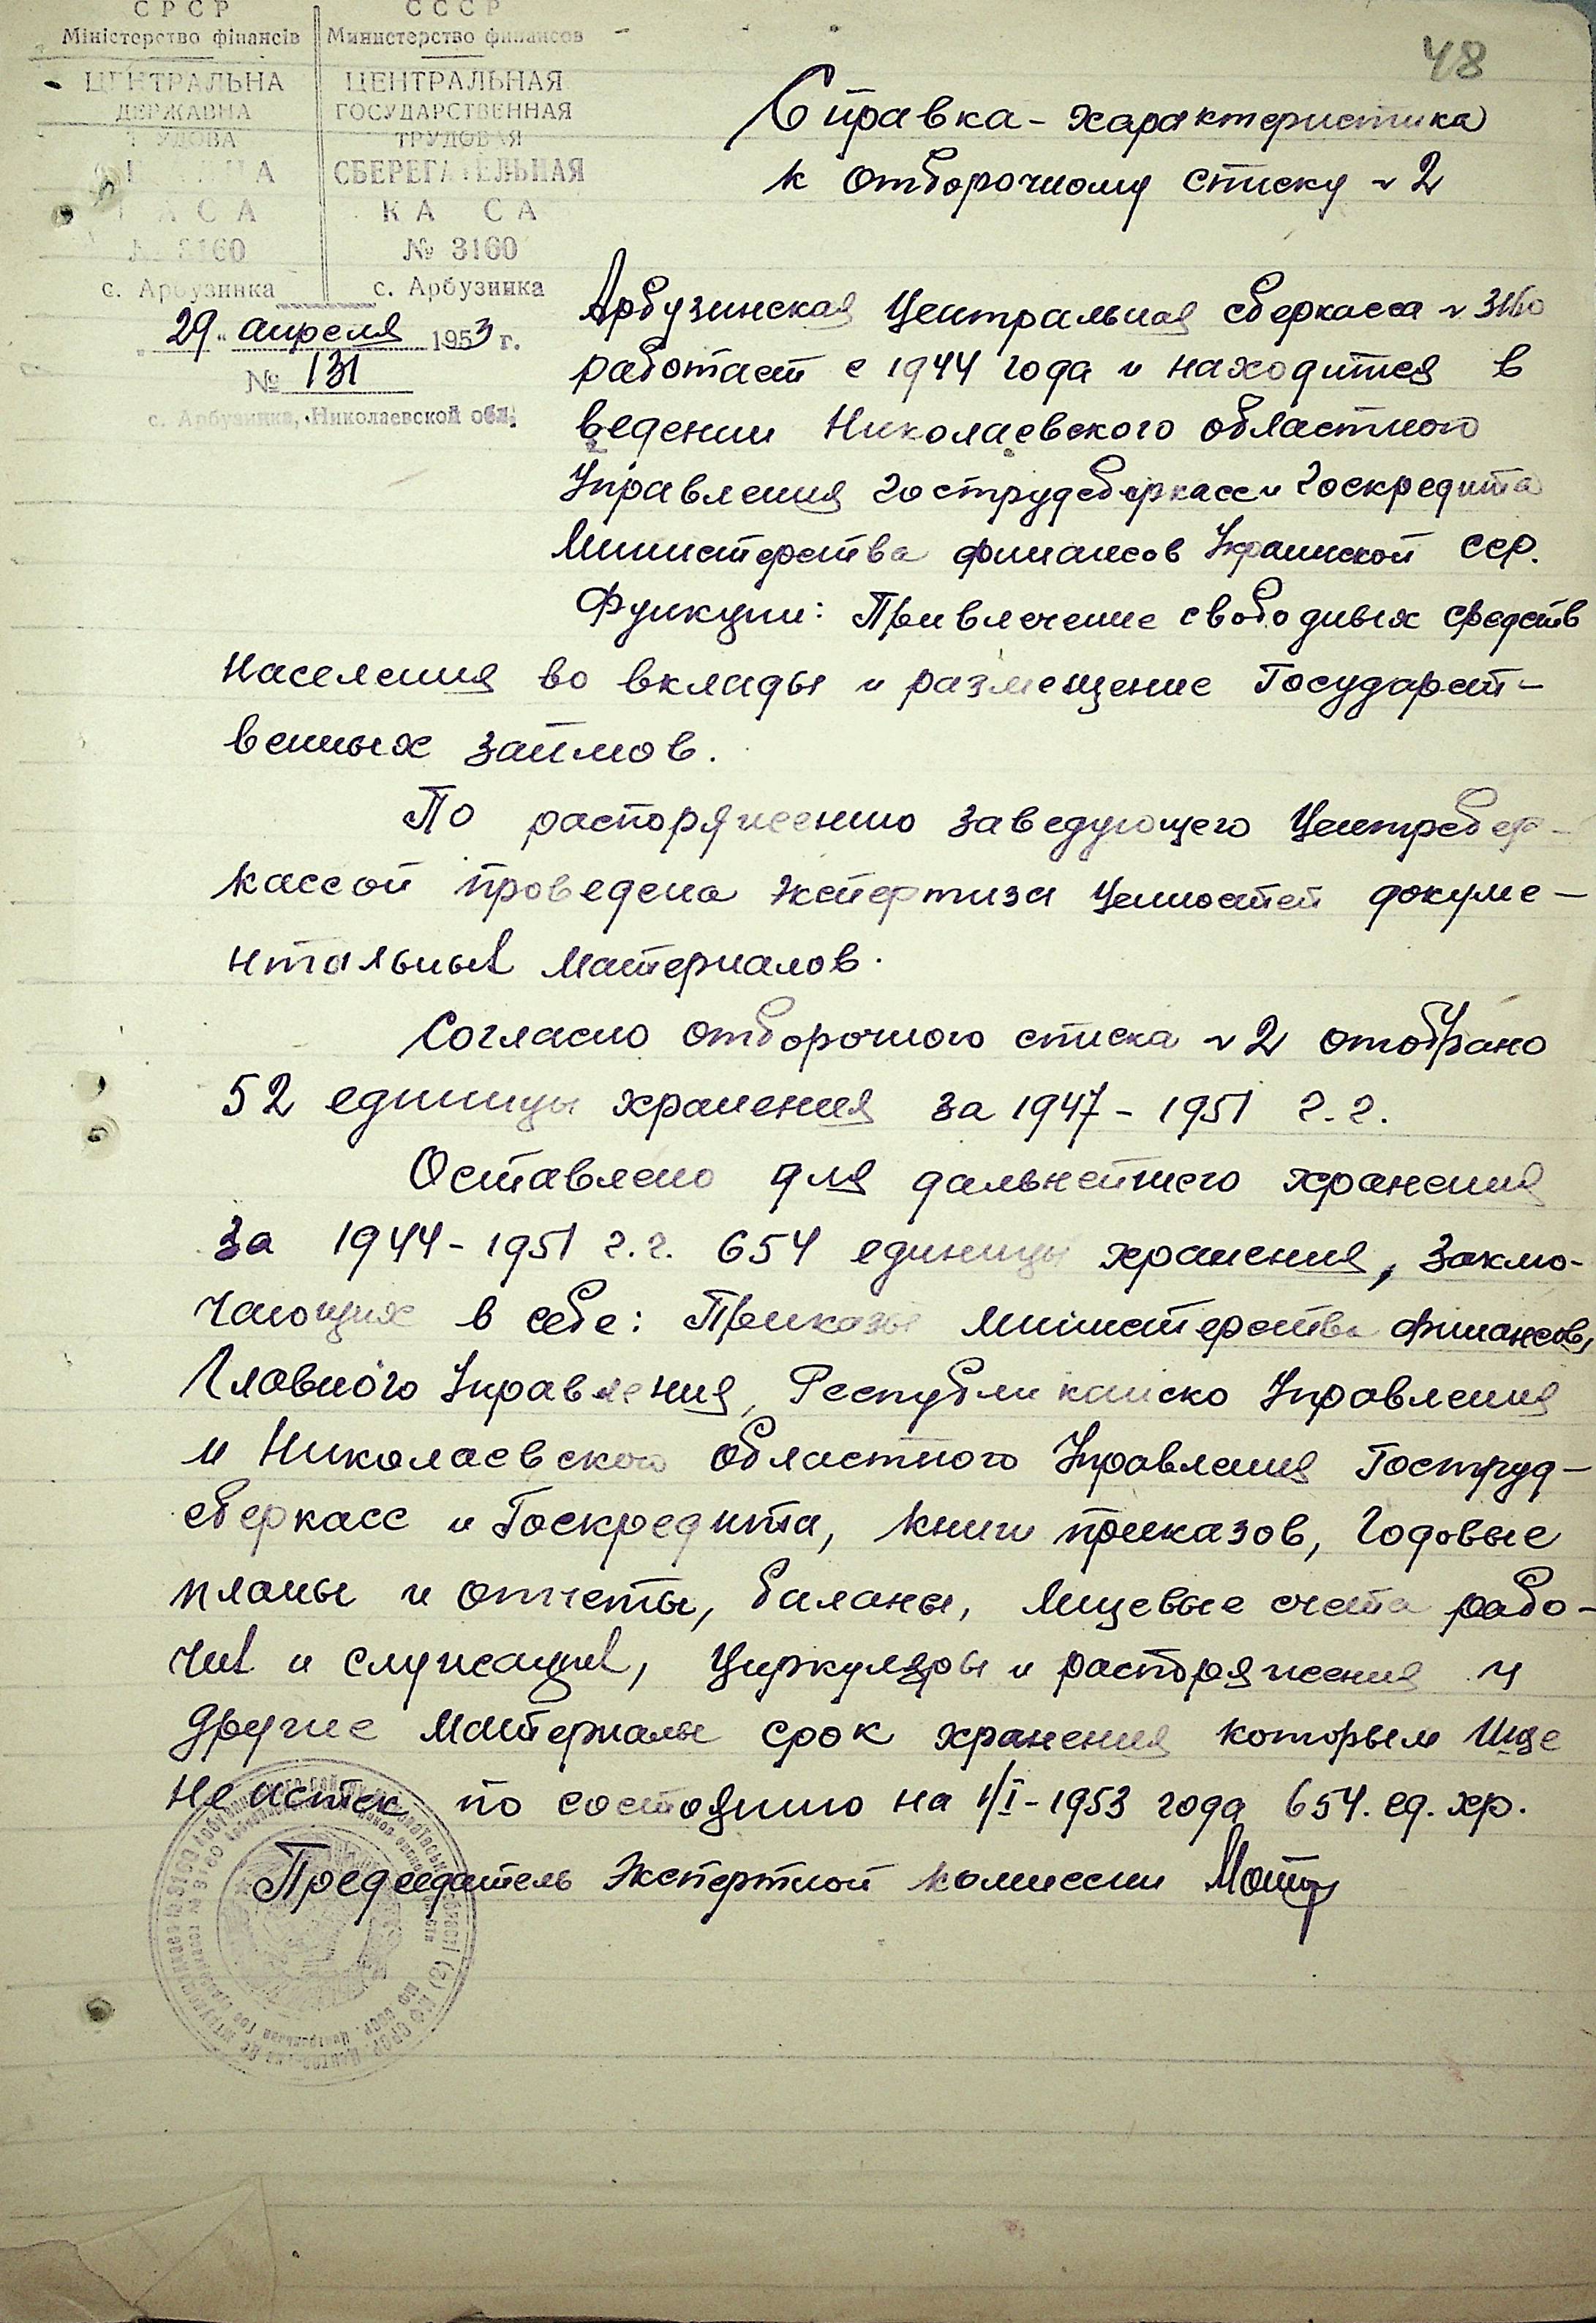 СРСР
Міністерство фінансів
ЦЕНТРАЛЬНА
ДЕРЖАВНА
с. Арбузинка
СССР
Министерство финансов
ЦЕНТРАЛЬНАЯ
ГОСУДАРСТВЕННАЯ
ТРУДОВАЯ
СБЕРЕГАТЕЛЬНАЯ
КАССА
№ 3160
с. Арбузинка
„29“ апреля 1953 г.
№ 131
с. Арбузинка, Николаевской обл.
48
Справка - характеристика
к отборочному списку № 2
Арбузинская Центральная сберкасса № 3160
работает с 1944 года и находится в
ведении Николаевского областного
Управления Гострудсберкасс и Госкредита
Министерства финансов Украинской сср.
Функции: Привлечение свободных средств
населения во вклады и размещение Государст-
венных займов.
По распоряжению заведующего Центрсбер-
кассой проведена экспертиза ценностей докуме-
нтальных материалов.
Согласно отборочного списка № 2 отобрано
52 единицы хранения за 1947 - 1951 г.г.
Оставлено для дальнейшего хранения
за 1944 - 1951 г.г. 654 единицы хранения, заклю-
чающих в себе: Приказы министерства финансов,
Главного Управления, Республиканско Управления
и Николаевского областного Управления Гострудс-
сберкасс и Госкредита, книги приказов, годовые
планы и отчеты, баланы, лицевые счета рабо-
чих и служащих, циркуляры и распоряжения и
другие материалы срок хранения которым ище
не истек по состоянию на 1/I - 1953 года 654. ед. хр.
Председатель Экспертной комиссии